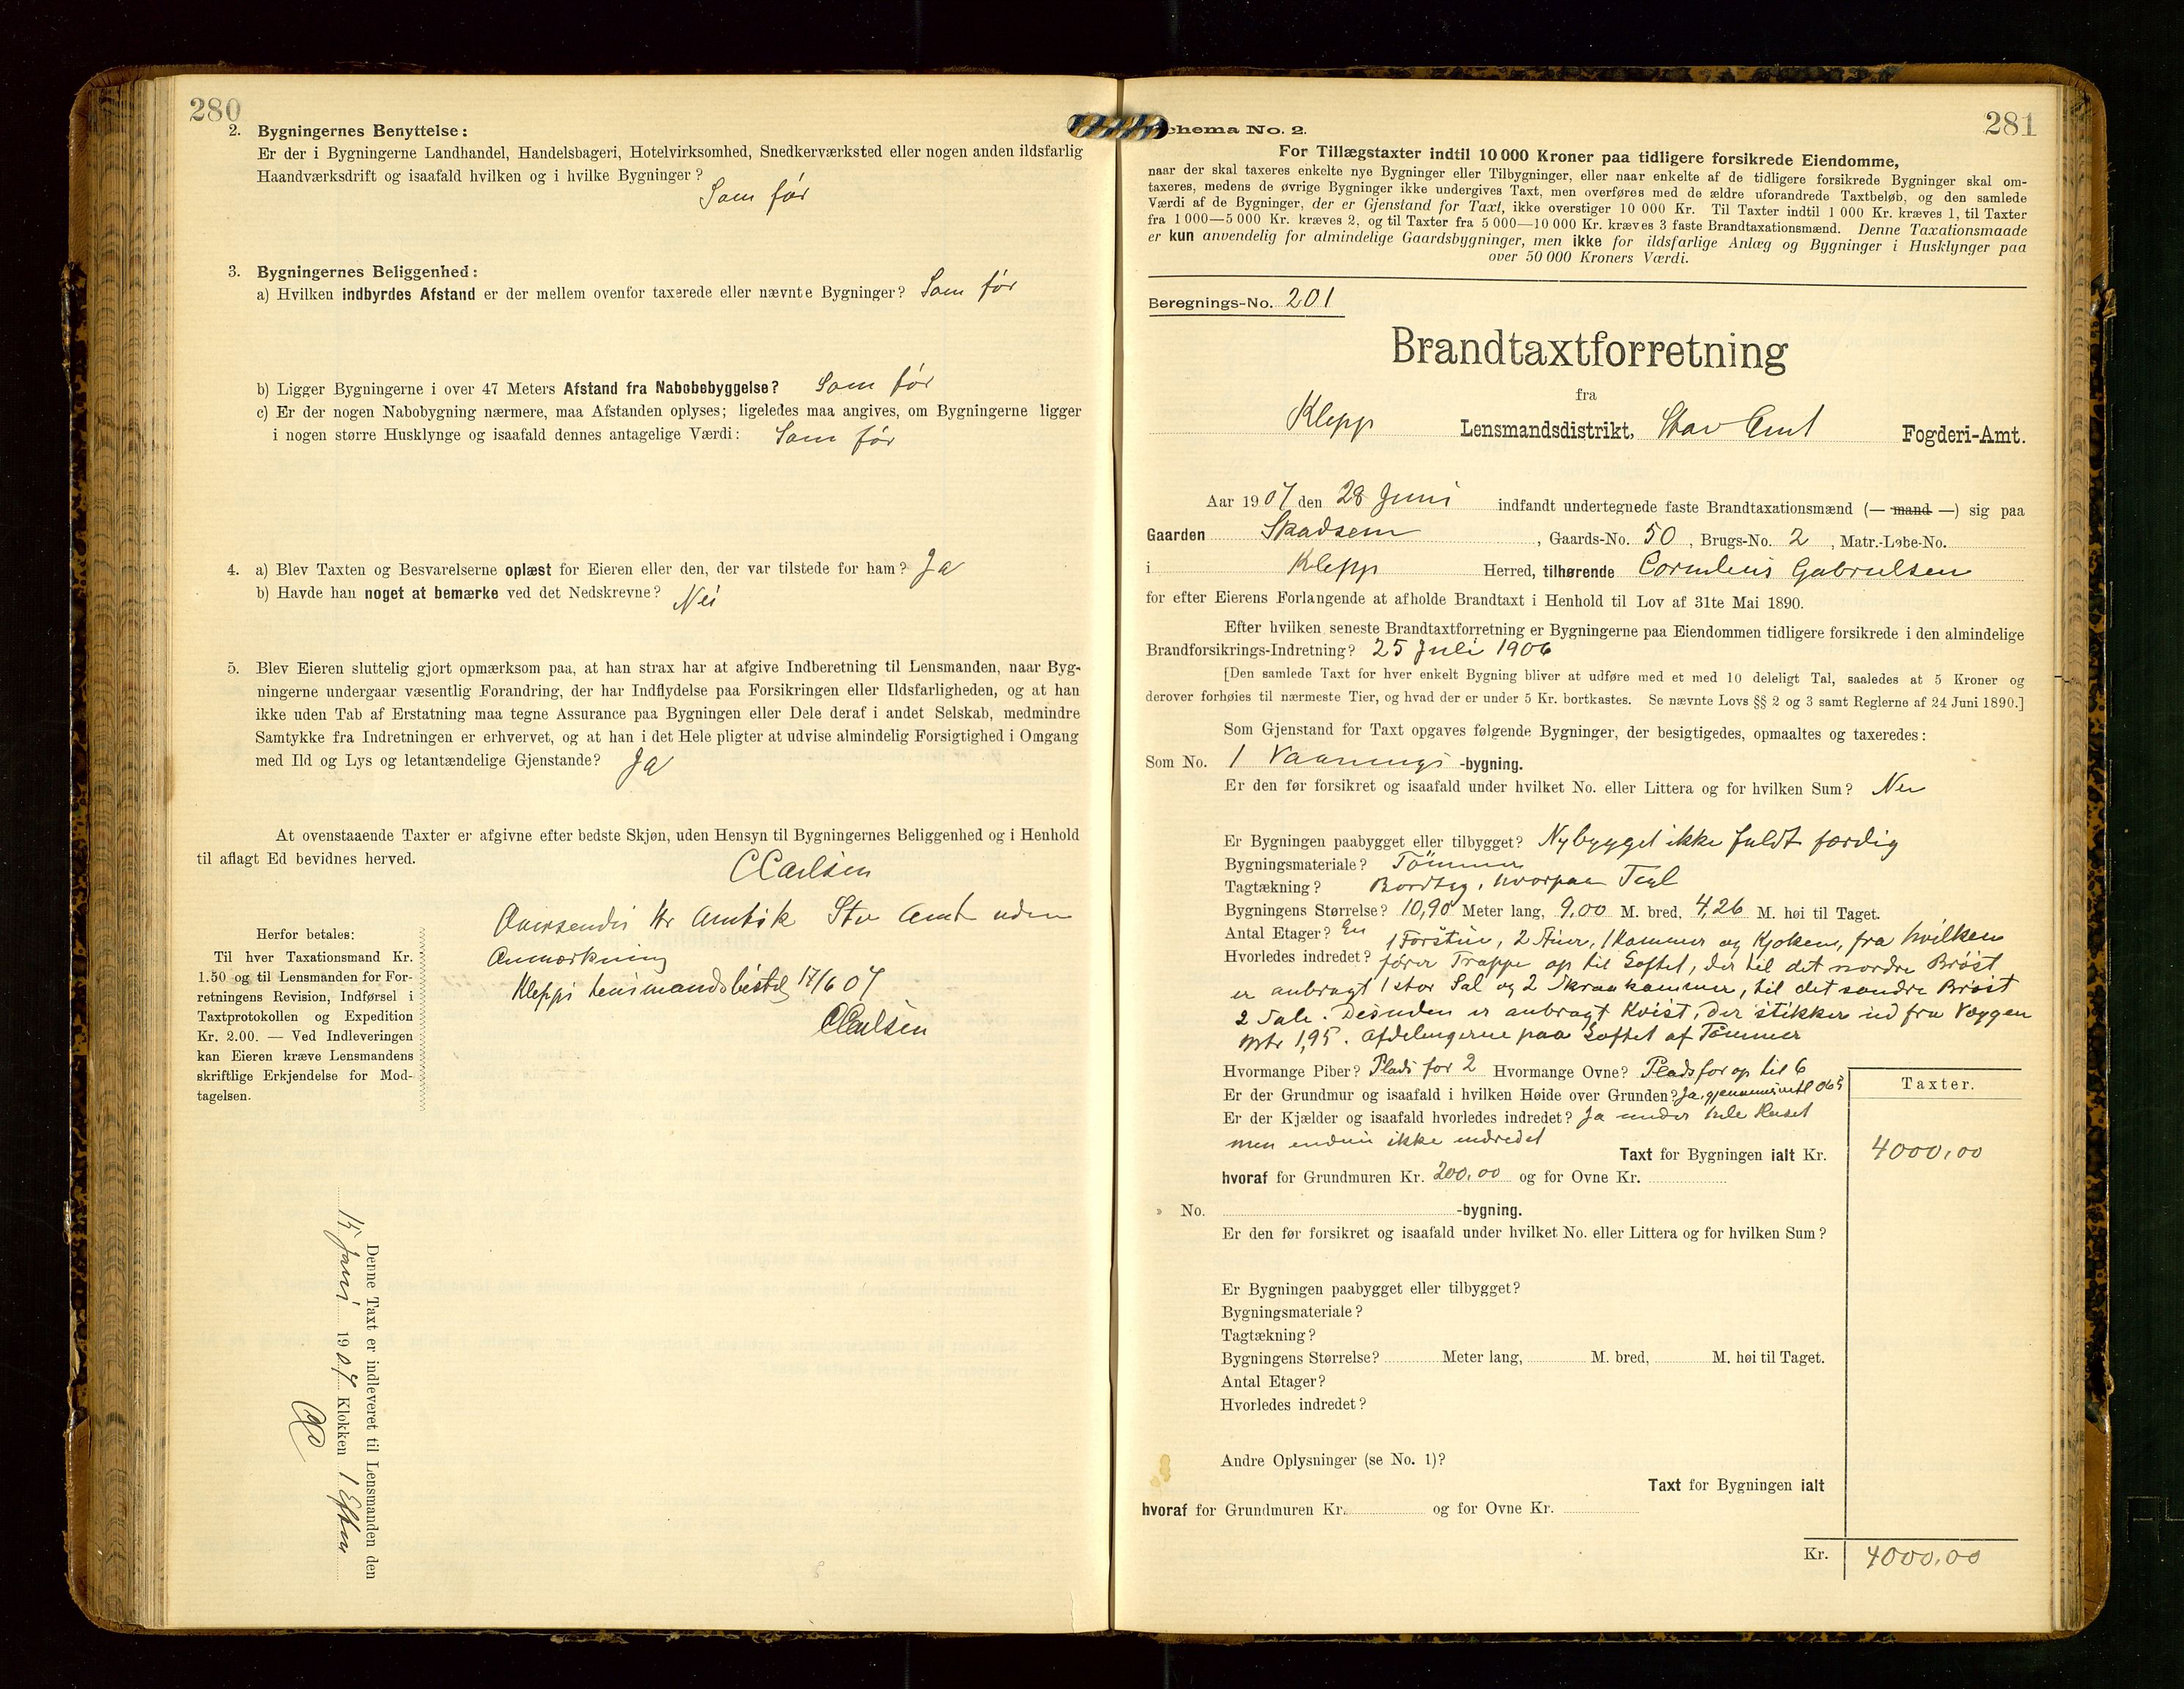 280
2. Bygningernes Benyttelse:
Er der i Bygningerne Landhandel, Handelsbageri, Hotelvirksomhed, Snedkerværksted eller nogen anden ildsfarlig
Haandværksdrift og isaafald hvilken og i hvilke Bygninger?
Som før
3. Bygningernes Beliggenhed:
a) Hvilken indbyrdes Afstand er der mellem ovenfor taxerede eller nævnte Bygninger? Som før
b) Ligger Bygningerne i over 47 Meters Afstand fra Nabobebyggelse? Som før
c) Er der nogen Nabobygning nærmere, maa Afstanden oplyses; ligeledes maa angives, om Bygningerne ligger
i nogen større Husklynge og isaafald dennes antagelige Værdi: Som før
4. a) Blev Taxten og Besvarelserne oplæst for Eieren eller den, der var tilstede for ham? Ja
b) Havde han noget at bemærke ved det Nedskrevne? Nei
5. Blev Eieren sluttelig gjort opmærksom paa, at han strax har at afgive Indberetning til Lensmanden, naar Byg-
ningerne undergaar væsentlig Forandring, der har Indflydelse paa Forsikringen eller Ildsfarligheden, og at han
ikke uden Tab af Erstatning maa tegne Assurance paa Bygningen eller Dele deraf i andet Selskab, medmindre
Samtykke fra Indretningen er erhvervet, og at han i det Hele pligter at udvise almindelig Forsigtighed i Omgang
med Ild og Lys og letantændelige Gjenstande? Ja
At ovenstaaende Taxter er afgivne efter bedste Skjøn, uden Hensyn til Bygningernes Beliggenhed og i Henhold
til aflagt Ed bevidnes herved.
CCarlsen
Oversendes Hr Amtsk Stv Amt uden
Anmærkning
Klepps Lensmandsbestil 17/6 07
CCarlsen
Herfor betales:
Til hver Taxationsmand Kr.
1.50 og til Lensmanden for For-
retningens Revision, Indførsel i
Taxtprotokollen og Expedition
Kr. 2.00. — Ved Indleveringen
kan Eieren kræve Lensmandens
skriftlige Erkjendelse for Mod-
tagelsen.
Denne Taxt er indleveret til Lensmanden den
15 Juni 1907 Klokken 1 Efterm
281
Schema No. 2.
For Tillægstaxter indtil 10 000 Kroner paa tidligere forsikrede Eiendomme,
naar der skal taxeres enkelte nye Bygninger eller Tilbygninger, eller naar enkelte af de tidligere forsikrede Bygninger skal om-
taxeres, medens de øvrige Bygninger ikke undergives Taxt, men overføres med de ældre uforandrede Taxtbeløb, og den samlede
Værdi af de Bygninger, der er Gjenstand for Taxt, ikke overstiger 10 000 Kr. Til Taxter indtil 1 000 Kr. kræves 1, til Taxter
fra 1 000—5 000 Kr. kræves 2, og til Taxter fra 5 000—10 000 Kr. kræves 3 faste Brandtaxationsmænd. Denne Taxationsmaade
er kun anvendelig for almindelige Gaardsbygninger, men ikke for ildsfarlige Anlæg og Bygninger i Husklynger paa
over 50 000 Kroners Værdi.
Beregnings-No. 201
Brandtaxtforretning
fra
Klepp Lensmandsdistrikt, Stav Amt Fogderi-Amt.
Aar 1907 den 28 Juni indfandt undertegnede faste Brandtaxationsmænd (— mand —) sig paa
Gaarden Skadsem, Gaards-No. 50, Brugs-No. 2, Matr.-Løbe-No.
i Klepp Herred, tilhørende Cornelius Gabrielsen
for efter Eierens Forlangende at afholde Brandtaxt i Henhold til Lov af 31te Mai 1890.
Efter hvilken seneste Brandtaxtforretning er Bygningerne paa Eiendommen tidligere forsikrede i den almindelige
Brandforsikrings-Indretning? 25 Juli 1906
[Den samlede Taxt for hver enkelt Bygning bliver at udføre med et med 10 deleligt Tal, saaledes at 5 Kroner og
derover forhøies til nærmeste Tier, og hvad der er under 5 Kr. bortkastes. Se nævnte Lovs §§ 2 og 3 samt Reglerne af 24 Juni 1890.]
Som Gjenstand for Taxt opgaves følgende Bygninger, der besigtigedes, opmaaltes og taxeredes:
Som No. 1 Vaanings-bygning.
Er den før forsikret og isaafald under hvilket No. eller Littera og for hvilken Sum? Nei
Er Bygningen paabygget eller tilbygget? Nybygget ikke fuldt færdig
Bygningsmateriale? Tømmer
Tagtækning? Bordtag, hvorpaa Tegl
Bygningens Størrelse? 10,90 Meter lang, 9,00 M. bred, 4,26 M. høi til Taget.
Antal Etager? En
Hvorledes indredet? 1 Forstue, 2 Stuer, 1 Kammer og Kjøken, fra hvilken
fører Trappe op til Loftet, der til det nordre Brøst
er anbragt 1 stor Sal og 2 Skraakammer, til det søndre Brøst
2 Sale. Desuden er anbragt Kvist, der stikker ud fra Væggen
Mtr 1,95. Afdelingerne paa Loftet af Tømmer
Hvormange Piber? Plads for 2 Hvormange Ovne? Plads for op til 6
Er der Grundmur og isaafald i hvilken Høide over Grunden? Ja, gjennemsnitl 0,65
Er der Kjælder og isaafald hvorledes indredet? Ja under hele Huset
men endnu ikke indredet
Taxter.
Taxt for Bygningen ialt Kr. 4000,00
hvoraf for Grundmuren Kr. 200,00 og for Ovne Kr.
» No. -bygning.
Er den før forsikret og isaafald under hvilket No. eller Littera og for hvilken Sum?
Er Bygningen paabygget eller tilbygget?
Bygningsmateriale?
Tagtækning?
Bygningens Størrelse? Meter lang, M. bred, M. høi til Taget.
Antal Etager?
Hvorledes indredet?
Andre Oplysninger (se No. 1)?
Taxt for Bygningen ialt
hvoraf for Grundmuren Kr. og for Ovne Kr.
Kr. 4000,00